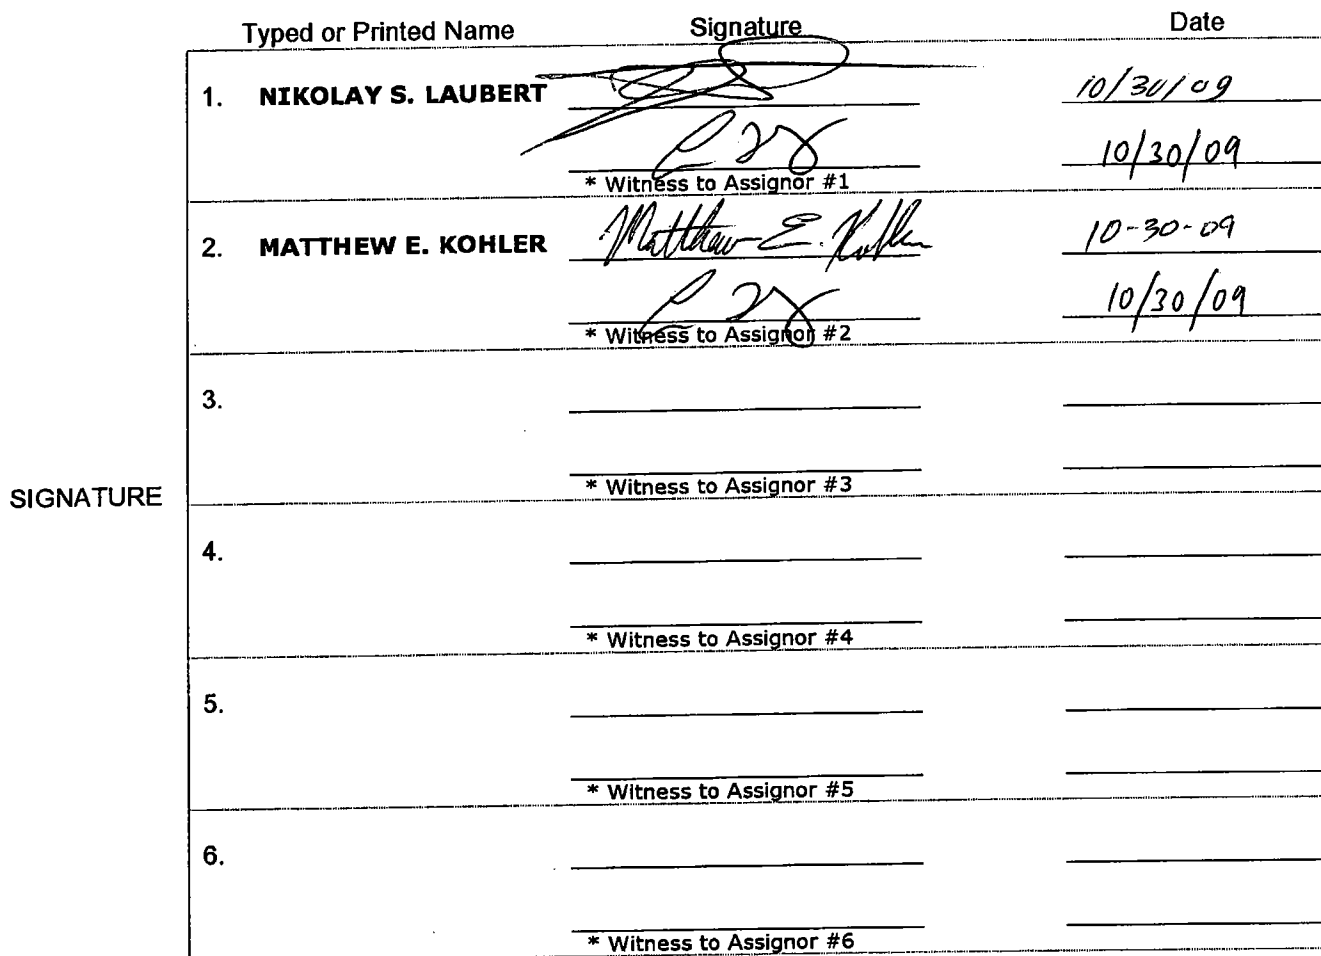 Typed or Printed Name Signature Date
1. NIKOLAY S. LAUBERT 10/30/09
10/30/09
* Witness to Assignor #1
2. MATTHEW E. KOHLER Matthew E. Kohler 10-30-09
10/30/09
* Witness to Assignor #2
3.
* Witness to Assignor #3
SIGNATURE
4.
* Witness to Assignor #4
5.
* Witness to Assignor #5
6.
* Witness to Assignor #6